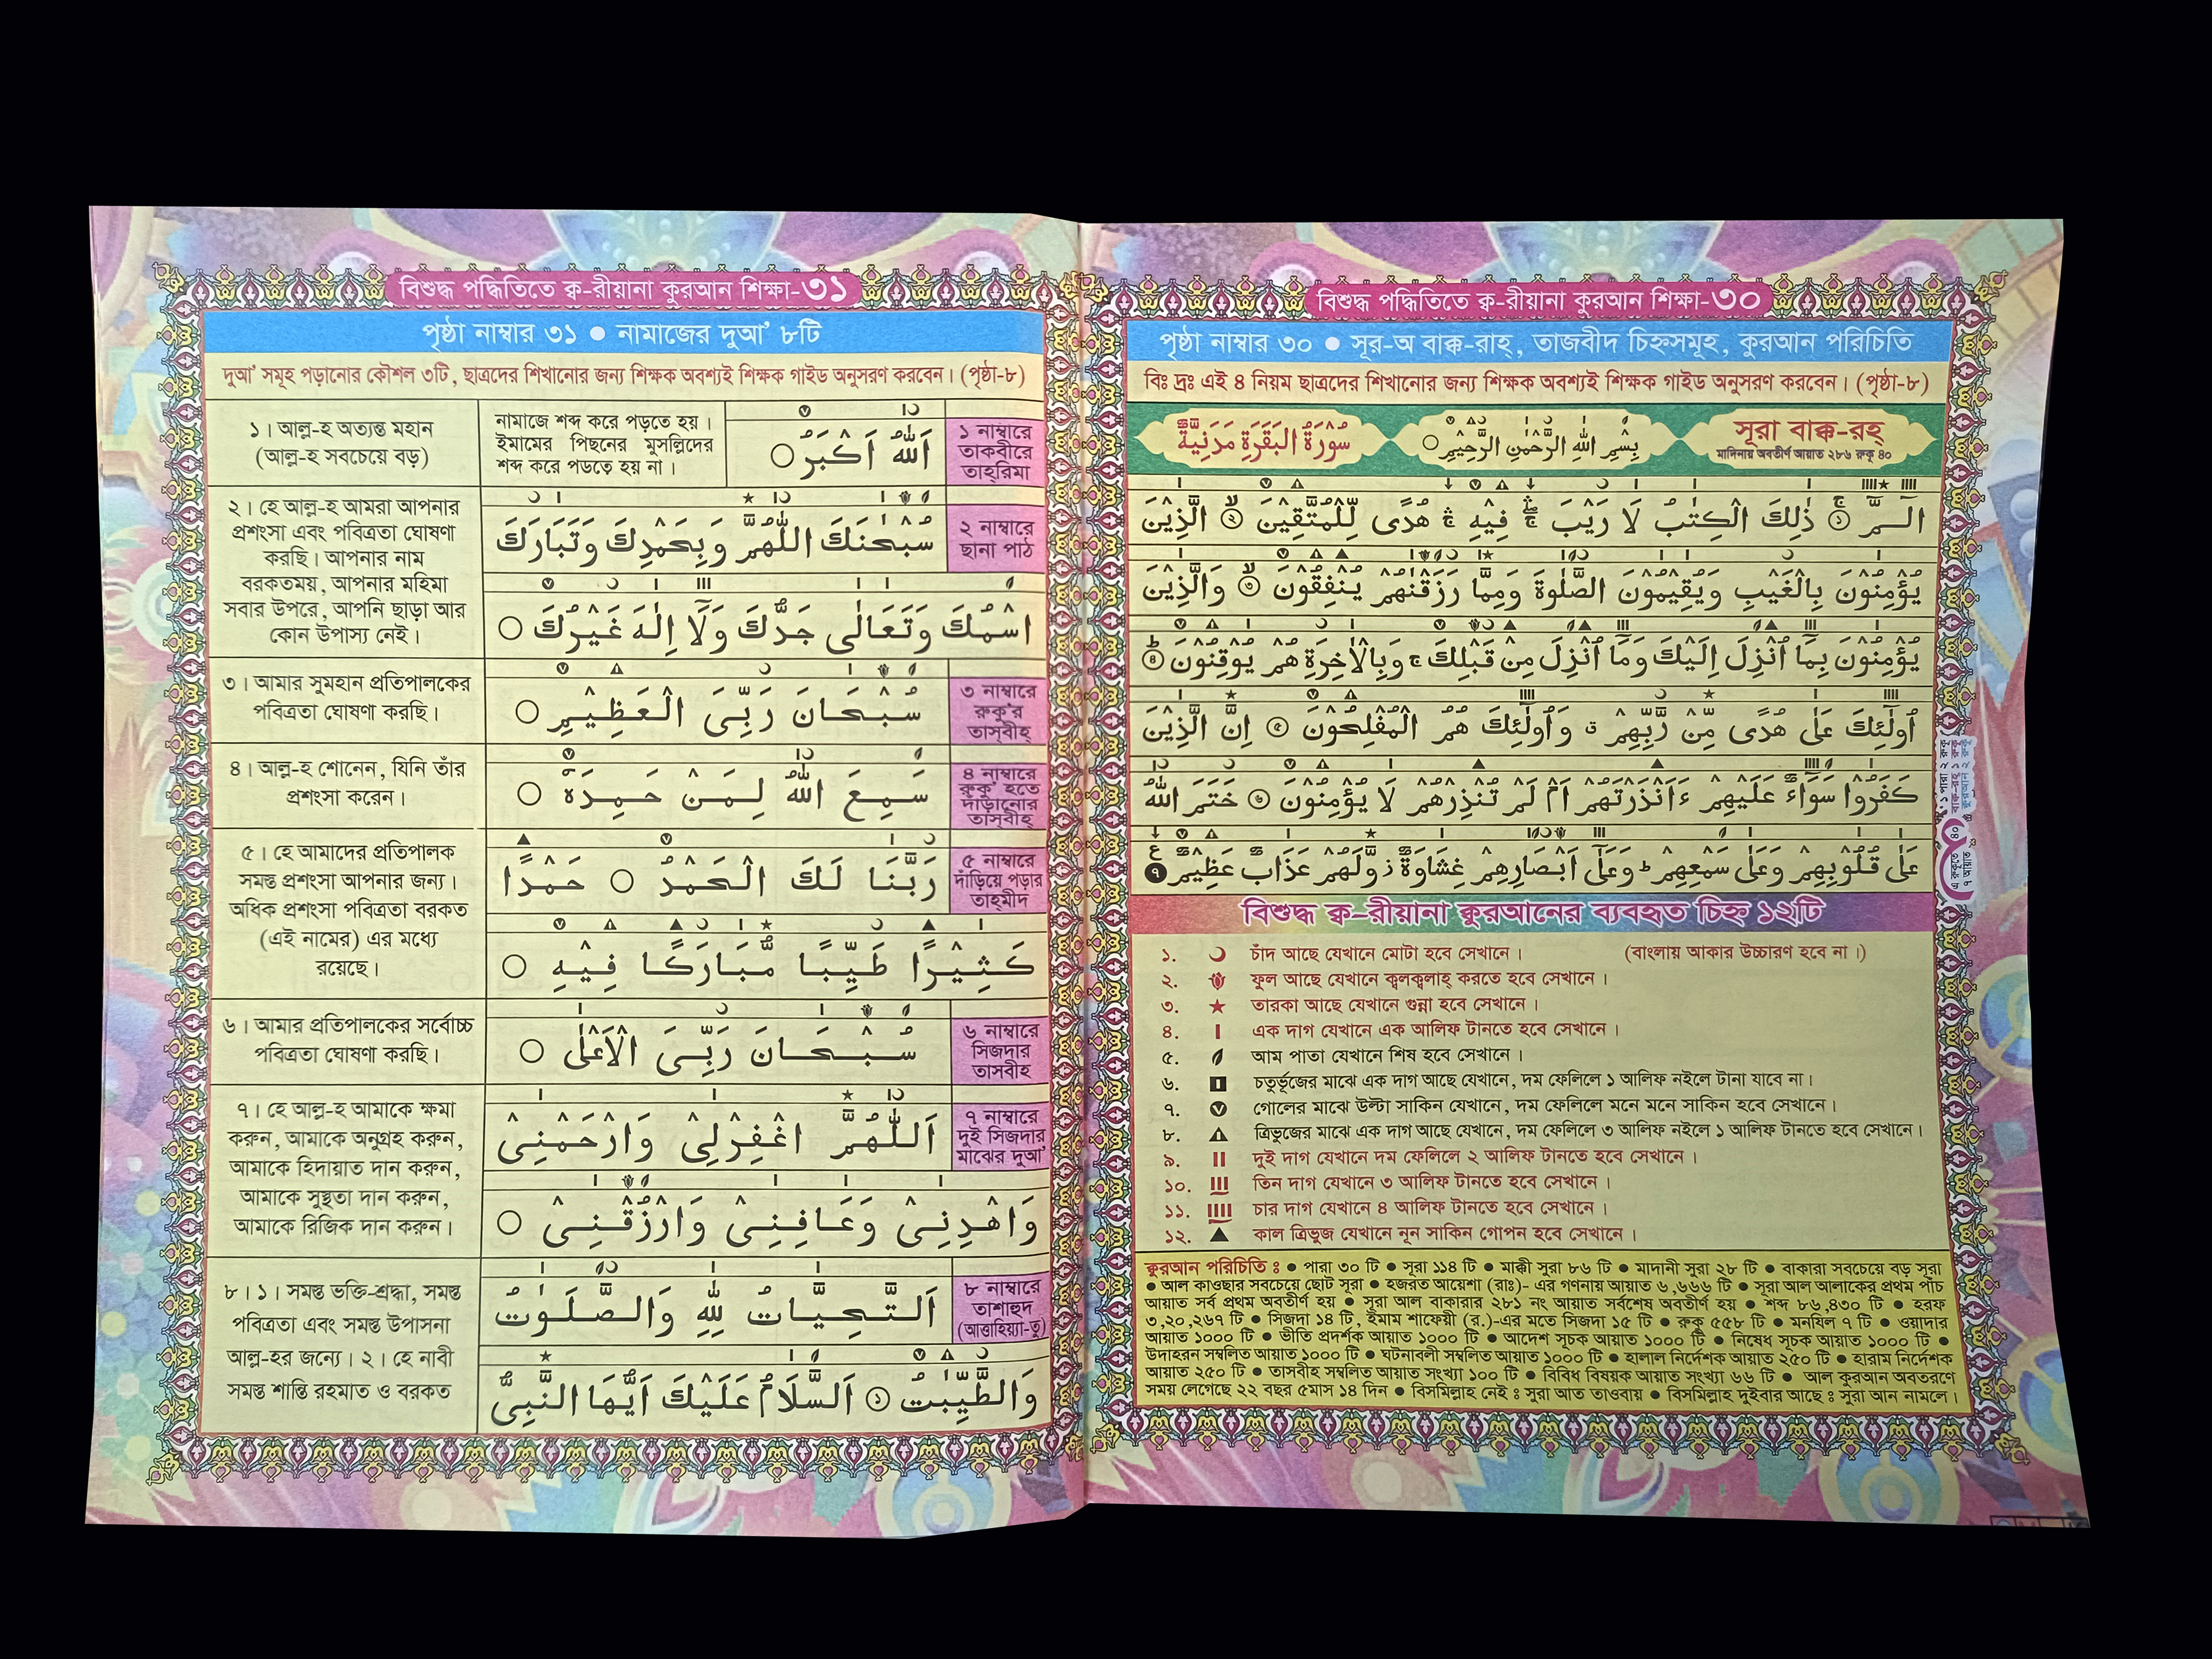 বিশুদ্ধ পদ্ধিতিতে ক্ব-রীয়ানা কুরআন শিক্ষা-৩১
পৃষ্ঠা নাম্বার ৩১ ● নামাজের দুআ’ ৮টি
দুআ’ সমূহ পড়ানোর কৌশল ৩টি, ছাত্রদের শিখানোর জন্য শিক্ষক অবশ্যই শিক্ষক গাইড অনুসরণ করবেন। (পৃষ্ঠা-৮)
১ নাম্বারে
তাকবীরে
তাহ্রিমা
اَللّٰهُ اَكْبَرُ ○
নামাজে শব্দ করে পড়তে হয়।
ইমামের পিছনের মুসল্লিদের
শব্দ করে পডতে হয় না।
১। আল্ল-হ অত্যন্ত মহান
(আল্ল-হ সবচেয়ে বড়)
২ নাম্বারে
ছানা পাঠ
سُبْحٰنَكَ اللّٰهُمَّ وَبِحَمْدِكَ وَتَبَارَكَ
اسْمُكَ وَتَعَالٰى جَدُّكَ وَلَآ اِلٰهَ غَيْرُكَ ○
২। হে আল্ল-হ আমরা আপনার
প্রশংসা এবং পবিত্রতা ঘোষণা
করছি। আপনার নাম
বরকতময়, আপনার মহিমা
সবার উপরে, আপনি ছাড়া আর
কোন উপাস্য নেই।
৩ নাম্বারে
রুকু’র
তাস্বীহ্
سُبْحَانَ رَبِّىَ الْعَظِيْمِ ○
৩। আমার সুমহান প্রতিপালকের
পবিত্রতা ঘোষণা করছি।
৪ নাম্বারে
রুকু’ হতে
দাঁড়ানোর
তাস্বীহ্
سَمِعَ اللّٰهُ لِمَنْ حَمِدَهٗ ○
৪। আল্ল-হ শোনেন, যিনি তাঁর
প্রশংসা করেন।
৫ নাম্বারে
দাঁড়িয়ে পড়ার
তাহ্মীদ
رَبَّنَا لَكَ الْحَمْدُ ○ حَمْدًا
كَثِيْرًا طَيِّبًا مُّبَارَكًا فِيْهِ ○
৫। হে আমাদের প্রতিপালক
সমস্ত প্রশংসা আপনার জন্য।
অধিক প্রশংসা পবিত্রতা বরকত
(এই নামের) এর মধ্যে
রয়েছে।
৬ নাম্বারে
সিজদার
তাসবীহ
سُبْحَانَ رَبِّىَ الْاَعْلٰى ○
৬। আমার প্রতিপালকের সর্বোচ্চ
পবিত্রতা ঘোষণা করছি।
৭ নাম্বারে
দুই সিজদার
মাঝের দুআ’
اَللّٰهُمَّ اغْفِرْلِىْ وَارْحَمْنِىْ
وَاهْدِنِىْ وَعَافِنِىْ وَارْزُقْنِىْ ○
৭। হে আল্ল-হ আমাকে ক্ষমা
করুন, আমাকে অনুগ্রহ করুন,
আমাকে হিদায়াত দান করুন,
আমাকে সুস্থতা দান করুন,
আমাকে রিজিক দান করুন।
৮ নাম্বারে
তাশাহুদ
(আত্তাহিয়্যা-তু)
اَلتَّحِيَّاتُ لِلّٰهِ وَالصَّلَوٰتُ
وَالطَّيِّبٰتُ ۞١ اَلسَّلَامُ عَلَيْكَ اَيُّهَا النَّبِىُّ
৮। ১। সমস্ত ভক্তি-শ্রদ্ধা, সমস্ত
পবিত্রতা এবং সমস্ত উপাসনা
আল্ল-হর জন্যে। ২। হে নাবী
সমস্ত শান্তি রহমাত ও বরকত
বিশুদ্ধ পদ্ধিতিতে ক্ব-রীয়ানা কুরআন শিক্ষা-৩০
পৃষ্ঠা নাম্বার ৩০ ● সূর-অ বাক্ক-রাহ্, তাজবীদ চিহ্নসমূহ, কুরআন পরিচিতি
বিঃ দ্রঃ এই ৪ নিয়ম ছাত্রদের শিখানোর জন্য শিক্ষক অবশ্যই শিক্ষক গাইড অনুসরণ করবেন। (পৃষ্ঠা-৮)
সূরা বাক্ক-রহ্
মাদিনায় অবতীর্ণ আয়াত ২৮৬ রুকূ ৪০
بِسْمِ اللّٰهِ الرَّحْمٰنِ الرَّحِيْمِ ○
سُوْرَةُ الْبَقَرَةِ مَدَنِيَّةٌ
الٓـمّٓ ۚ ١ ذٰلِكَ الْكِتٰبُ لَا رَيْبَ ۛۚ فِيْهِ ۛۚ هُدًى لِّلْمُتَّقِيْنَ ۙ ٢ الَّذِيْنَ
يُؤْمِنُوْنَ بِالْغَيْبِ وَيُقِيْمُوْنَ الصَّلٰوةَ وَمِمَّا رَزَقْنٰهُمْ يُنْفِقُوْنَ ۙ ٣ وَالَّذِيْنَ
يُؤْمِنُوْنَ بِمَآ اُنْزِلَ اِلَيْكَ وَمَآ اُنْزِلَ مِنْ قَبْلِكَ ۚ وَبِالْاٰخِرَةِ هُمْ يُوْقِنُوْنَ ؕ ٤
اُولٰٓئِكَ عَلٰى هُدًى مِّنْ رَّبِّهِمْ ۗ وَاُولٰٓئِكَ هُمُ الْمُفْلِحُوْنَ ٥ اِنَّ الَّذِيْنَ
كَفَرُوْا سَوَآءٌ عَلَيْهِمْ ءَاَنْذَرْتَهُمْ اَمْ لَمْ تُنْذِرْهُمْ لَا يُؤْمِنُوْنَ ٦ خَتَمَ اللّٰهُ
عَلٰى قُلُوْبِهِمْ وَعَلٰى سَمْعِهِمْ ؕ وَعَلٰٓى اَبْصَارِهِمْ غِشَاوَةٌ ز وَّلَهُمْ عَذَابٌ عَظِيْمٌ ٧ ع
বিশুদ্ধ ক্ব-রীয়ানা ক্বুরআনের ব্যবহৃত চিহ্ন ১২টি
১. ☽ চাঁদ আছে যেখানে মোটা হবে সেখানে। (বাংলায় আকার উচ্চারণ হবে না।)
২. ফুল আছে যেখানে ক্বলক্বলাহ্ করতে হবে সেখানে।
৩. ★ তারকা আছে যেখানে গুন্না হবে সেখানে।
৪. I এক দাগ যেখানে এক আলিফ টানতে হবে সেখানে।
৫. আম পাতা যেখানে শিষ হবে সেখানে।
৬. চতুর্ভূজের মাঝে এক দাগ আছে যেখানে, দম ফেলিলে ১ আলিফ নইলে টানা যাবে না।
৭. গোলের মাঝে উল্টা সাকিন যেখানে, দম ফেলিলে মনে মনে সাকিন হবে সেখানে।
৮. ত্রিভুজের মাঝে এক দাগ আছে যেখানে, দম ফেলিলে ৩ আলিফ নইলে ১ আলিফ টানতে হবে সেখানে।
৯. II দুই দাগ যেখানে দম ফেলিলে ২ আলিফ টানতে হবে সেখানে।
১০. III তিন দাগ যেখানে ৩ আলিফ টানতে হবে সেখানে।
১১. IIII চার দাগ যেখানে ৪ আলিফ টানতে হবে সেখানে।
১২. ▲ কাল ত্রিভুজ যেখানে নূন সাকিন গোপন হবে সেখানে।
ক্বুরআন পরিচিতি : ● পারা ৩০ টি ● সূরা ১১৪ টি ● মাক্কী সুরা ৮৬ টি ● মাদানী সুরা ২৮ টি ● বাকারা সবচেয়ে বড় সূরা
● আল কাওছার সবচেয়ে ছোট সূরা ● হজরত আয়েশা (রাঃ)- এর গণনায় আয়াত ৬,৬৬৬ টি ● সূরা আল আলাকের প্রথম পাঁচ
আয়াত সর্ব প্রথম অবতীর্ণ হয় ● সুরা আল বাকারার ২৮১ নং আয়াত সর্বশেষ অবতীর্ণ হয় ● শব্দ ৮৬,৪৩০ টি ● হরফ
৩,২০,২৬৭ টি ● সিজদা ১৪ টি, ইমাম শাফেয়ী (র.)-এর মতে সিজদা ১৫ টি ● রুকূ ৫৫৮ টি ● মনযিল ৭ টি ● ওয়াদার
আয়াত ১০০০ টি ● ভীতি প্রদর্শক আয়াত ১০০০ টি ● আদেশ সূচক আয়াত ১০০০ টি ● নিষেধ সূচক আয়াত ১০০০ টি ●
উদাহরন সম্বলিত আয়াত ১০০০ টি ● ঘটনাবলী সম্বলিত আয়াত ১০০০ টি ● হালাল নির্দেশক আয়াত ২৫০ টি ● হারাম নির্দেশক
আয়াত ২৫০ টি ● তাসবীহ সম্বলিত আয়াত সংখ্যা ১০০ টি ● বিবিধ বিষয়ক আয়াত সংখ্যা ৬৬ টি ● আল কুরআন অবতরণে
সময় লেগেছে ২২ বছর ৫মাস ১৪ দিন ● বিসমিল্লাহ নেই : সুরা আত তাওবায় ● বিসমিল্লাহ দুইবার আছে : সুরা আন নামলে।